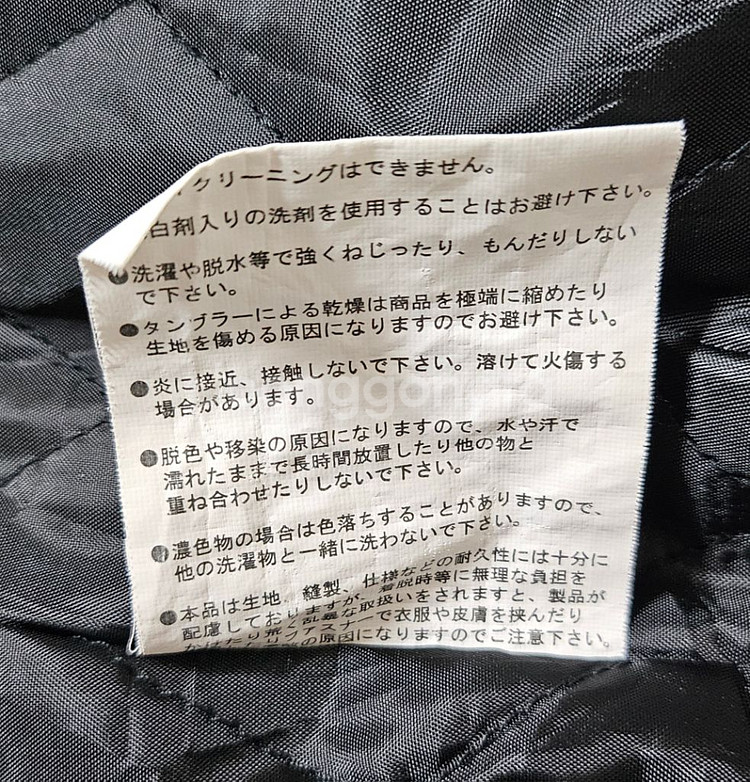 クリーニングはできません。
白剤入りの洗剤を使用することはお避け下さい。
●洗濯や脱水等で強くねじったり、もんだりしない
で下さい。
●タンブラーによる乾燥は商品を極端に縮めたり
生地を傷める原因になりますのでお避け下さい。
●炎に接近、接触しないで下さい。溶けて火傷する
場合があります。
●脱色や移染の原因になりますので、水や汗で
濡れたままで長時間放置したり他の物と
重ね合わせたりしないで下さい。
●濃色物の場合は色落ちすることがありますので、
他の洗濯物と一緒に洗わないで下さい。
●本品は生地、縫製、仕様などの耐久性には十分に
配慮しておりますが、着脱時等に無理な負担を
かけたり荒く乱暴な取扱いをされますと、製品が
ファスナーで衣服や皮膚を挟んだり
の原因になりますのでご注意下さい。